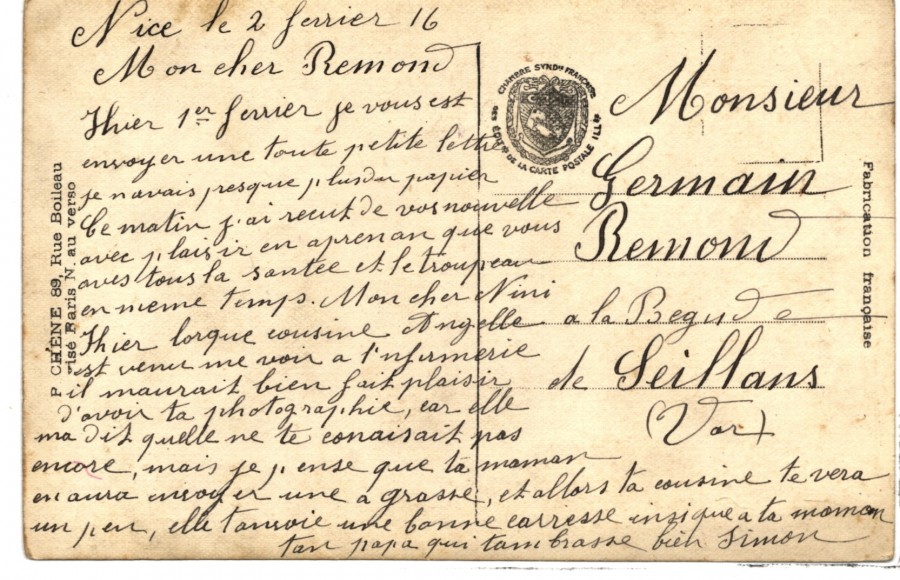 Nice le 2 ferrier 16
Mon cher Remond
Hhier 1er ferrier je vous est
envoyer une toute petite lettre
je navais presque plus du papier
Ce matin j'ai recut de vos nouvelle
avec plaisir en aprenan que vous
aves tous la santée et le troupeau
en meme temps. Mon cher Nini
Hhier lorque cousine Angelle
est venu me voir a l'nfermerie
il maurait bien fait plaisir
d'avoir ta photographie, car elle
ma dit quelle ne te conaisait pas
encore, mais je pense que ta maman
en aura envoyer une a grasse, et allors ta cousine te vera
un peu, elle tanvoie une bonne carresse ensique a ta maman
tan papa qui tambrasse bien Simon
Monsieur
Germain
Remond
a la Begude
de Seillans
(Var)
CHAMBRE SYNDle FRANÇAISE
DES EDrs DE LA CARTE POSTALE ILLée
P CHÊNE 89, Rue Boileau
Visé Paris N. au verso
Fabrication française